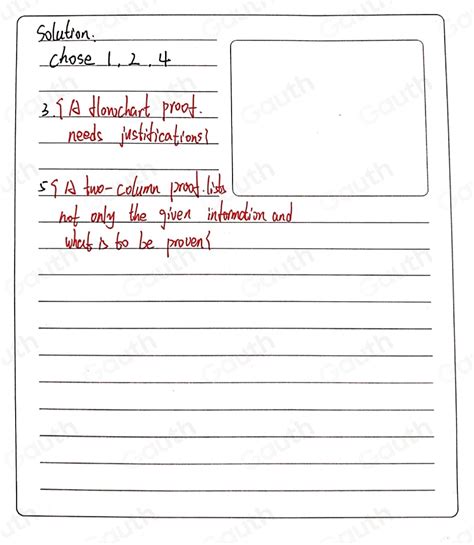 Solution.
chose 1, 2, 4
3. { A flowchart proof.
needs justifications}
5 { A two-column proof. lists
not only the given information and
what is to be proven}